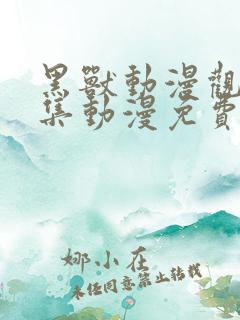 黑獸動漫觀
集動漫免費
娜小在
未经同意禁止转载